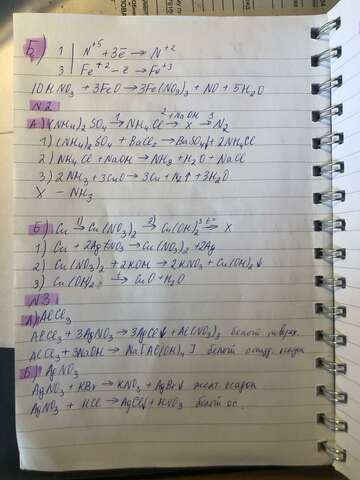 Б) 1 | N⁺⁵ + 3ē → N⁺²
3 | Fe⁺² - ē → Fe⁺³
10HNO₃ + 3FeO → 3Fe(NO₃)₃ + NO + 5H₂O
N2
А) (NH₄)₂SO₄ →¹ NH₄Cl →²⁺NaOH X →³ N₂
1) (NH₄)₂SO₄ + BaCl₂ → BaSO₄↓ + 2NH₄Cl
2) NH₄Cl + NaOH → NH₃ + H₂O + NaCl
3) 2NH₃ + 3CuO → 3Cu + N₂↑ + 3H₂O
X - NH₃
Б) Cu →¹⁾ Cu(NO₃)₂ →²⁾ Cu(OH)₂ →³ᵗ⁼ X
1) Cu + 2AgNO₃ → Cu(NO₃)₂ + 2Ag
2) Cu(NO₃)₂ + 2KOH → 2KNO₃ + Cu(OH)₂↓
3) Cu(OH)₂ → CuO + H₂O
N3
А) AlCl₃
AlCl₃ + 3AgNO₃ → 3AgCl↓ + Al(NO₃)₃ белый
AlCl₃ + 3NaOH → Na[Al(OH)₄] белый
Б. AgNO₃
AgNO₃ + KBr → KNO₃ + AgBr↓ желт. осадок
AgNO₃ + HCl → AgCl↓ + HNO₃ белый ос.